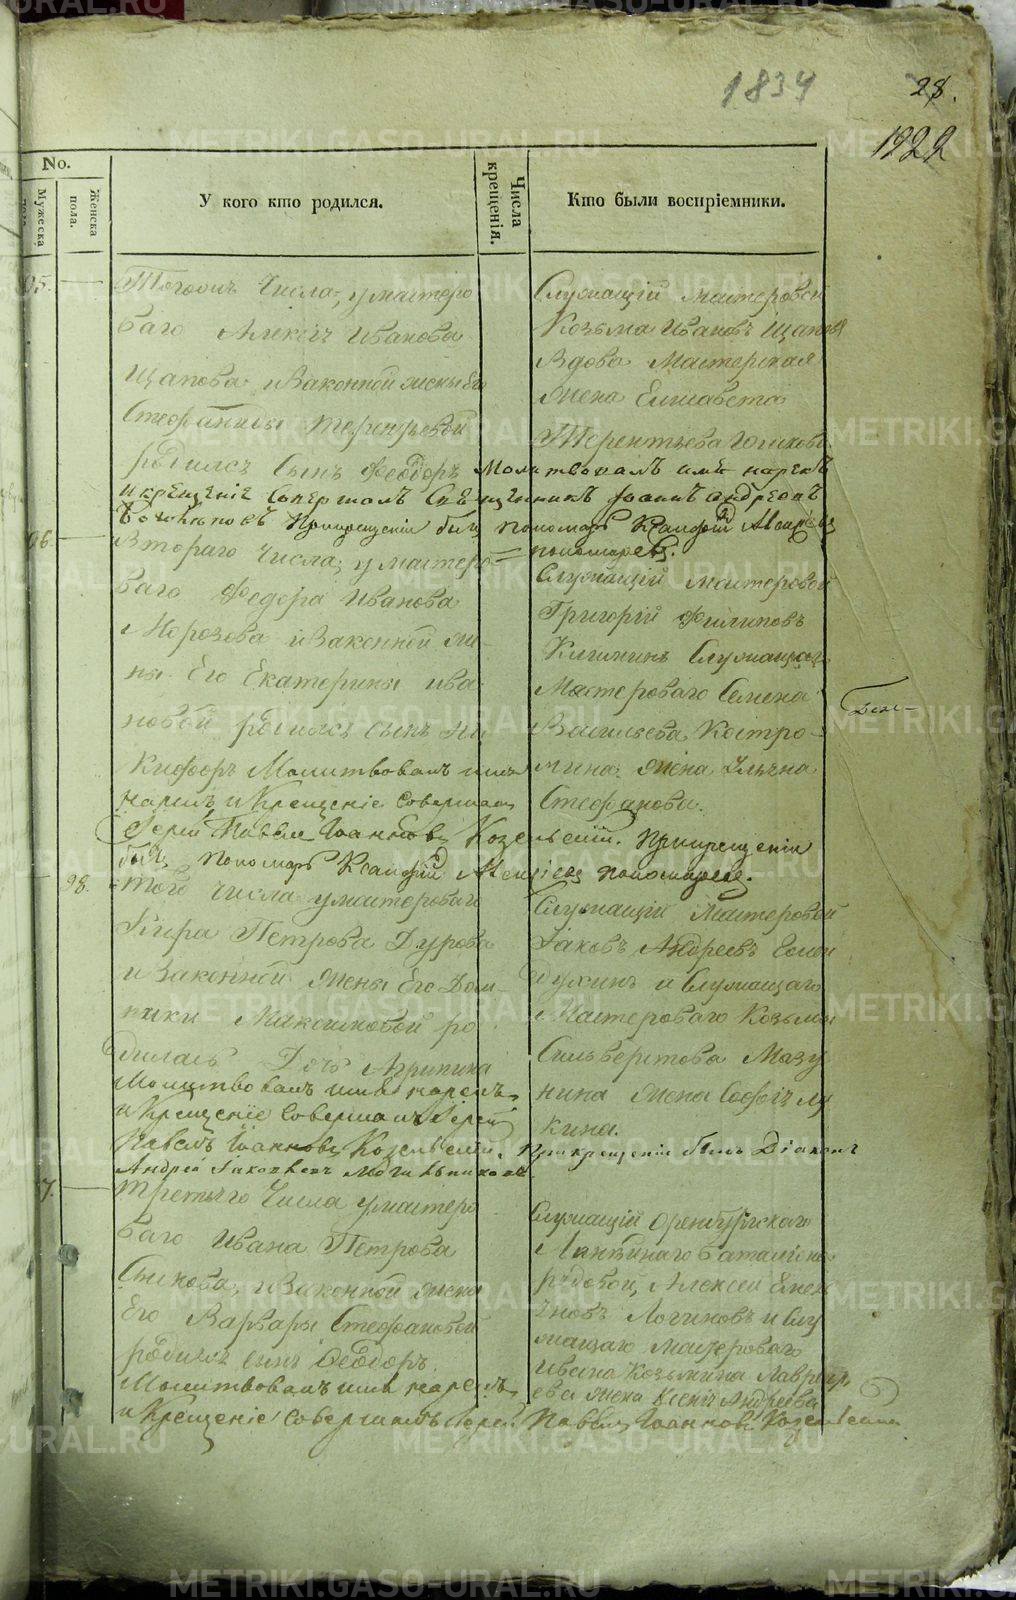 1834
28.
1222
No.
Мужеска
пола.
Женска
пола.
У кого кто родился.
Числа
крещенія.
Кто были воспріемники.
95.
Тогожъ Числа, у мастеро
ваго Ивановa
Щапова, и Законной жены Его
Стефаниды Терентьевой
родился Сынъ Феодоръ Молитвовалъ имя нарекъ
и крещеніе Совершалъ Священникъ Іоаннъ Андреевъ
При крещеніи былъ пономарь Ксанфій
пономаревъ.
Служащій Мастеровой
Козьма Ивановъ Щаповъ
Вдова Мастерская
Жена Елисавета
Терентьева
96.
Втораго Числа, у мастеро=
ваго Федора Иванова
Морозова и Законной же
ны Его Екатерины Ива
новой, родился Сынъ Ни
кифоръ Молитвовалъ имя
нарекъ, и Крещеніе совершалъ
Іерей Павелъ Іоанновъ Козельскій. При крещеніи
былъ Пономарь Ксанфій Алексіевъ пономаревъ.
Служащій мастеровой
Григорій Филиповъ
Служащаго
Мастероваго Семена
Васильева Костро-
мина Жена Ульяна
Стефанова.
98.
Того Числа у мастероваго
Кира Петрова Дурова
и Законной Жены Его Дом-
ники Максимовой ро
дилась Дочь Агрипина
Молитвовалъ имя нарекъ,
и Крещеніе Совершалъ Іерей
Павелъ Іоанновъ Козельскій. При крещеніи былъ Діаконъ
Андрей Іаковлевъ
Служащій Мастеровой
Іаковъ Андреевъ
и Служащаго
Мастероваго Козьмы
Сильверстова Мазу
нина Жена Софія Лу
кина.
7.
Третьяго Числа у мастеро
ваго Ивана Петрова
и Законной жены
Его Варвары Стефановой
родился сынъ Феодоръ.
Молитвовалъ имя нарекъ,
и Крещеніе совершалъ Іерей Павелъ Іоанновъ Козельскій
Служащій Оренбургскаго
Линейнаго баталіона
рядовой, Алексей Емель
яновъ Логиновъ и Слу
жащаго Мастероваго
Ивана Козьмина Лаврен
ева жена Ксенія Андреева
METRIKI.GASO-URAL.RU